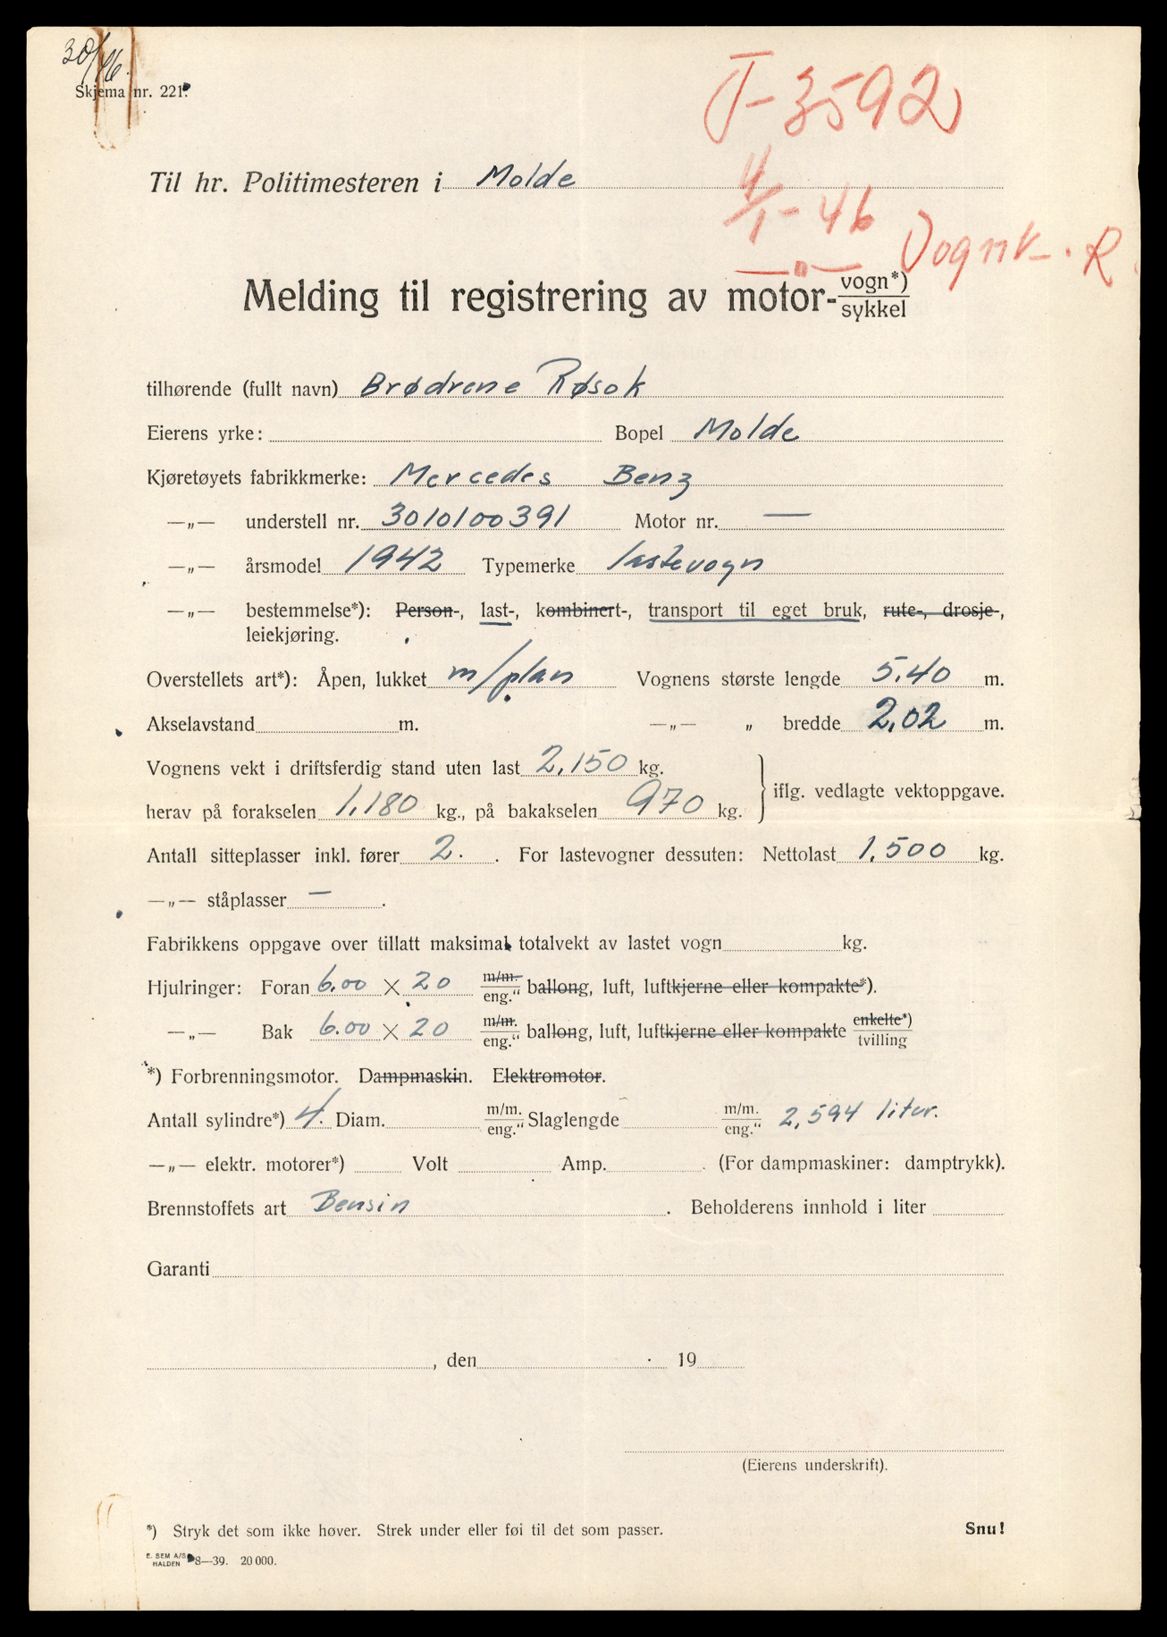 30/46.
Skjema nr. 221.
T-3592
Til hr. Politimesteren i Molde
4/1-46
Vognk. R.
Melding til registrering av motor-vogn*)/sykkel
tilhørende (fullt navn) Brødrene Røsok
Eierens yrke: Bopel Molde
Kjøretøyets fabrikkmerke: Mercedes Benz
—„— understell nr. 3010100391 Motor nr. —
—„— årsmodel 1942 Typemerke lastevogn
—„— bestemmelse*): Person-, last-, kombinert-, transport til eget bruk, rute-, drosje-,
leiekjøring.
Overstellets art*): Åpen, lukket m/plan Vognens største lengde 5.40 m.
Akselavstand m. —„— „ bredde 2,02 m.
Vognens vekt i driftsferdig stand uten last 2,150 kg.
herav på forakselen 1,180 kg., på bakakselen 970 kg. } iflg. vedlagte vektoppgave.
Antall sitteplasser inkl. fører 2. . For lastevogner dessuten: Nettolast 1,500 kg.
—„— ståplasser — .
Fabrikkens oppgave over tillatt maksimal totalvekt av lastet vogn kg.
Hjulringer: Foran 6.00 X 20 m/m./eng.“ ballong, luft, luftkjerne eller kompakte*).
—„— Bak 6.00 X 20 m/m./eng.“ ballong, luft, luftkjerne eller kompakte enkelte*)/tvilling
*) Forbrenningsmotor. Dampmaskin. Elektromotor.
Antall sylindre*) 4. Diam. m/m./eng.“ Slaglengde m/m./eng.“ 2,594 liter.
—„— elektr. motorer*) Volt Amp. . (For dampmaskiner: damptrykk).
Brennstoffets art Bensin . Beholderens innhold i liter
Garanti
, den 19
(Eierens underskrift).
*) Stryk det som ikke høver. Strek under eller føi til det som passer. Snu!
E. SEM A/S HALDEN 8—39. 20 000.